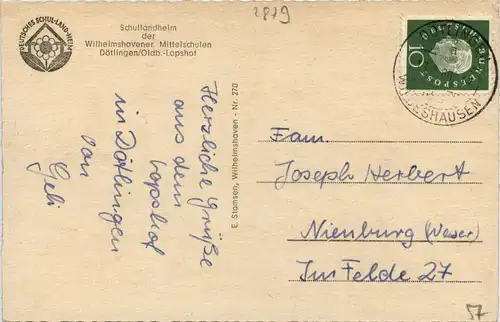 2879
DEUTSCHES SCHUL-LAND-HEIM
Schullandheim
der
Wilhelmshavener Mittelschulen
Dötlingen/Oldb.-Lopshof
DEUTSCHE BUNDESPOST
10
WILDESHAUSEN
Herzliche Grüße
aus dem
Lopshof
in Dötlingen
von
Geli
E. Stamsen, Wilhelmshaven - Nr. 270
Fam.
Joseph Herbert
Nienburg (Weser)
Im Felde 27
57